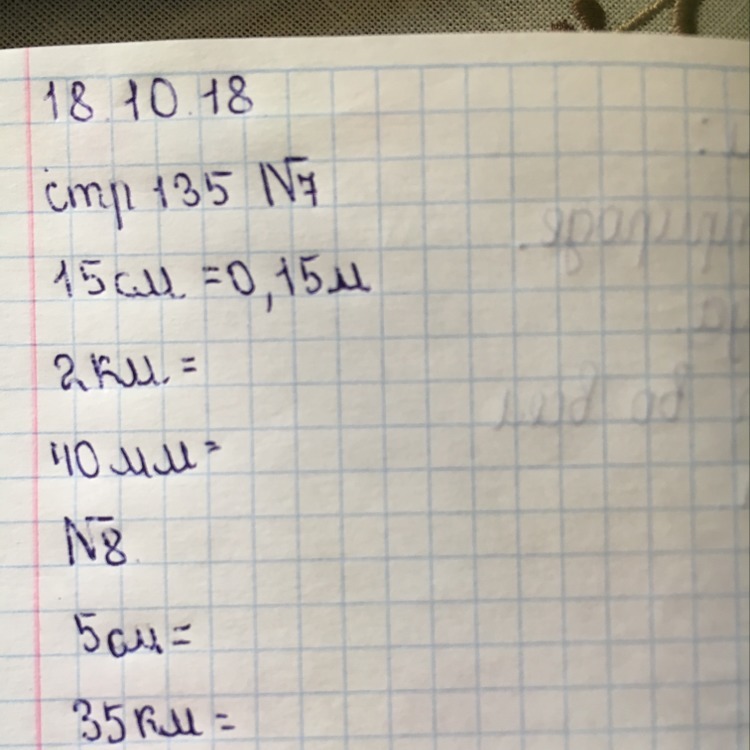 18.10.18
стр 135 №7
15см = 0,15м
2км. =
40мм =
№8
5см =
35км =